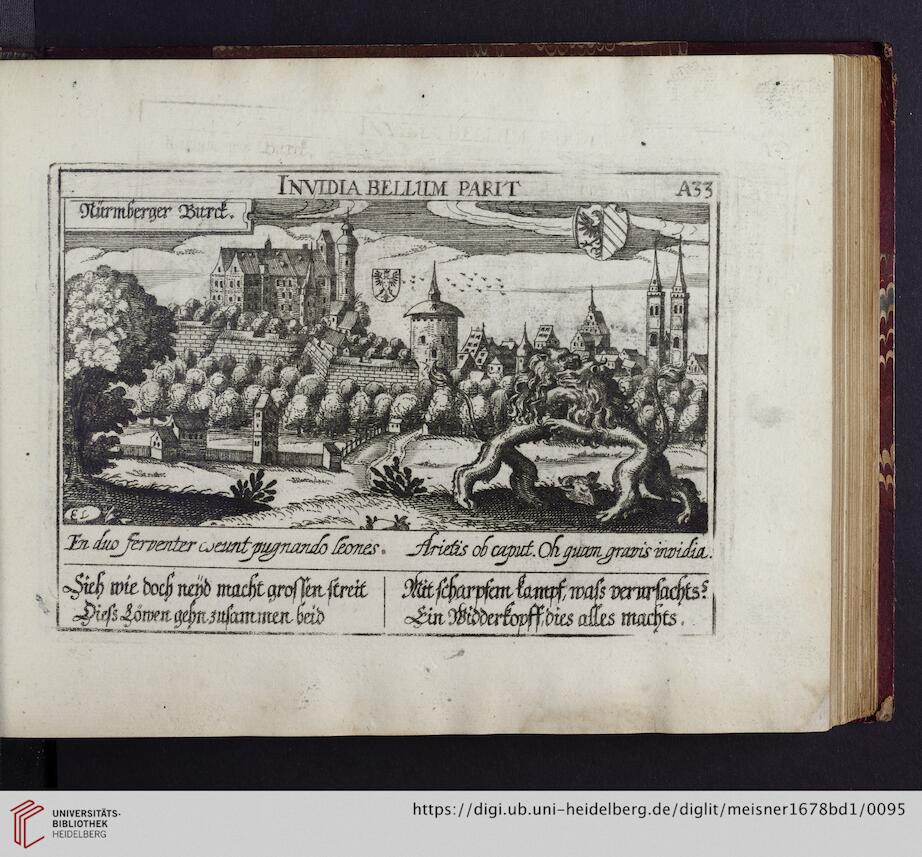 INVIDIA BELLUM PARIT
A33
Nürmberger Burck.
EL
En duo ferventer coeunt pugnando leones.
Arietis ob caput. Oh quam gravis invidia.
Sieh wie doch neÿd macht grossen streit
Diess Löwen gehn zusammen beid
Mit scharpfem kampf, wass verursachts?
Ein Widderkopff, dies alles machts.
UNIVERSITÄTS-
BIBLIOTHEK
HEIDELBERG
https://digi.ub.uni-heidelberg.de/diglit/meisner1678bd1/0095